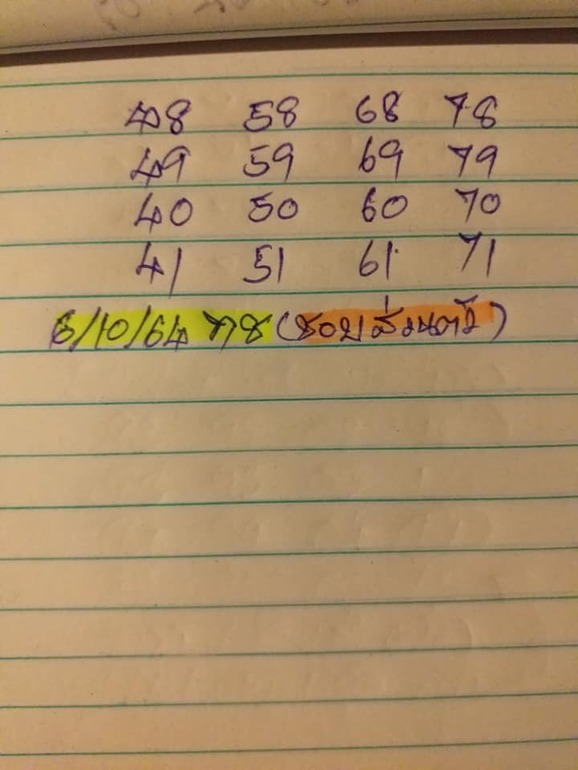 48 58 68 78
49 59 69 79
40 50 60 70
41 51 61 71
6/10/64 ฑาช (ชอบส่วนตัว)